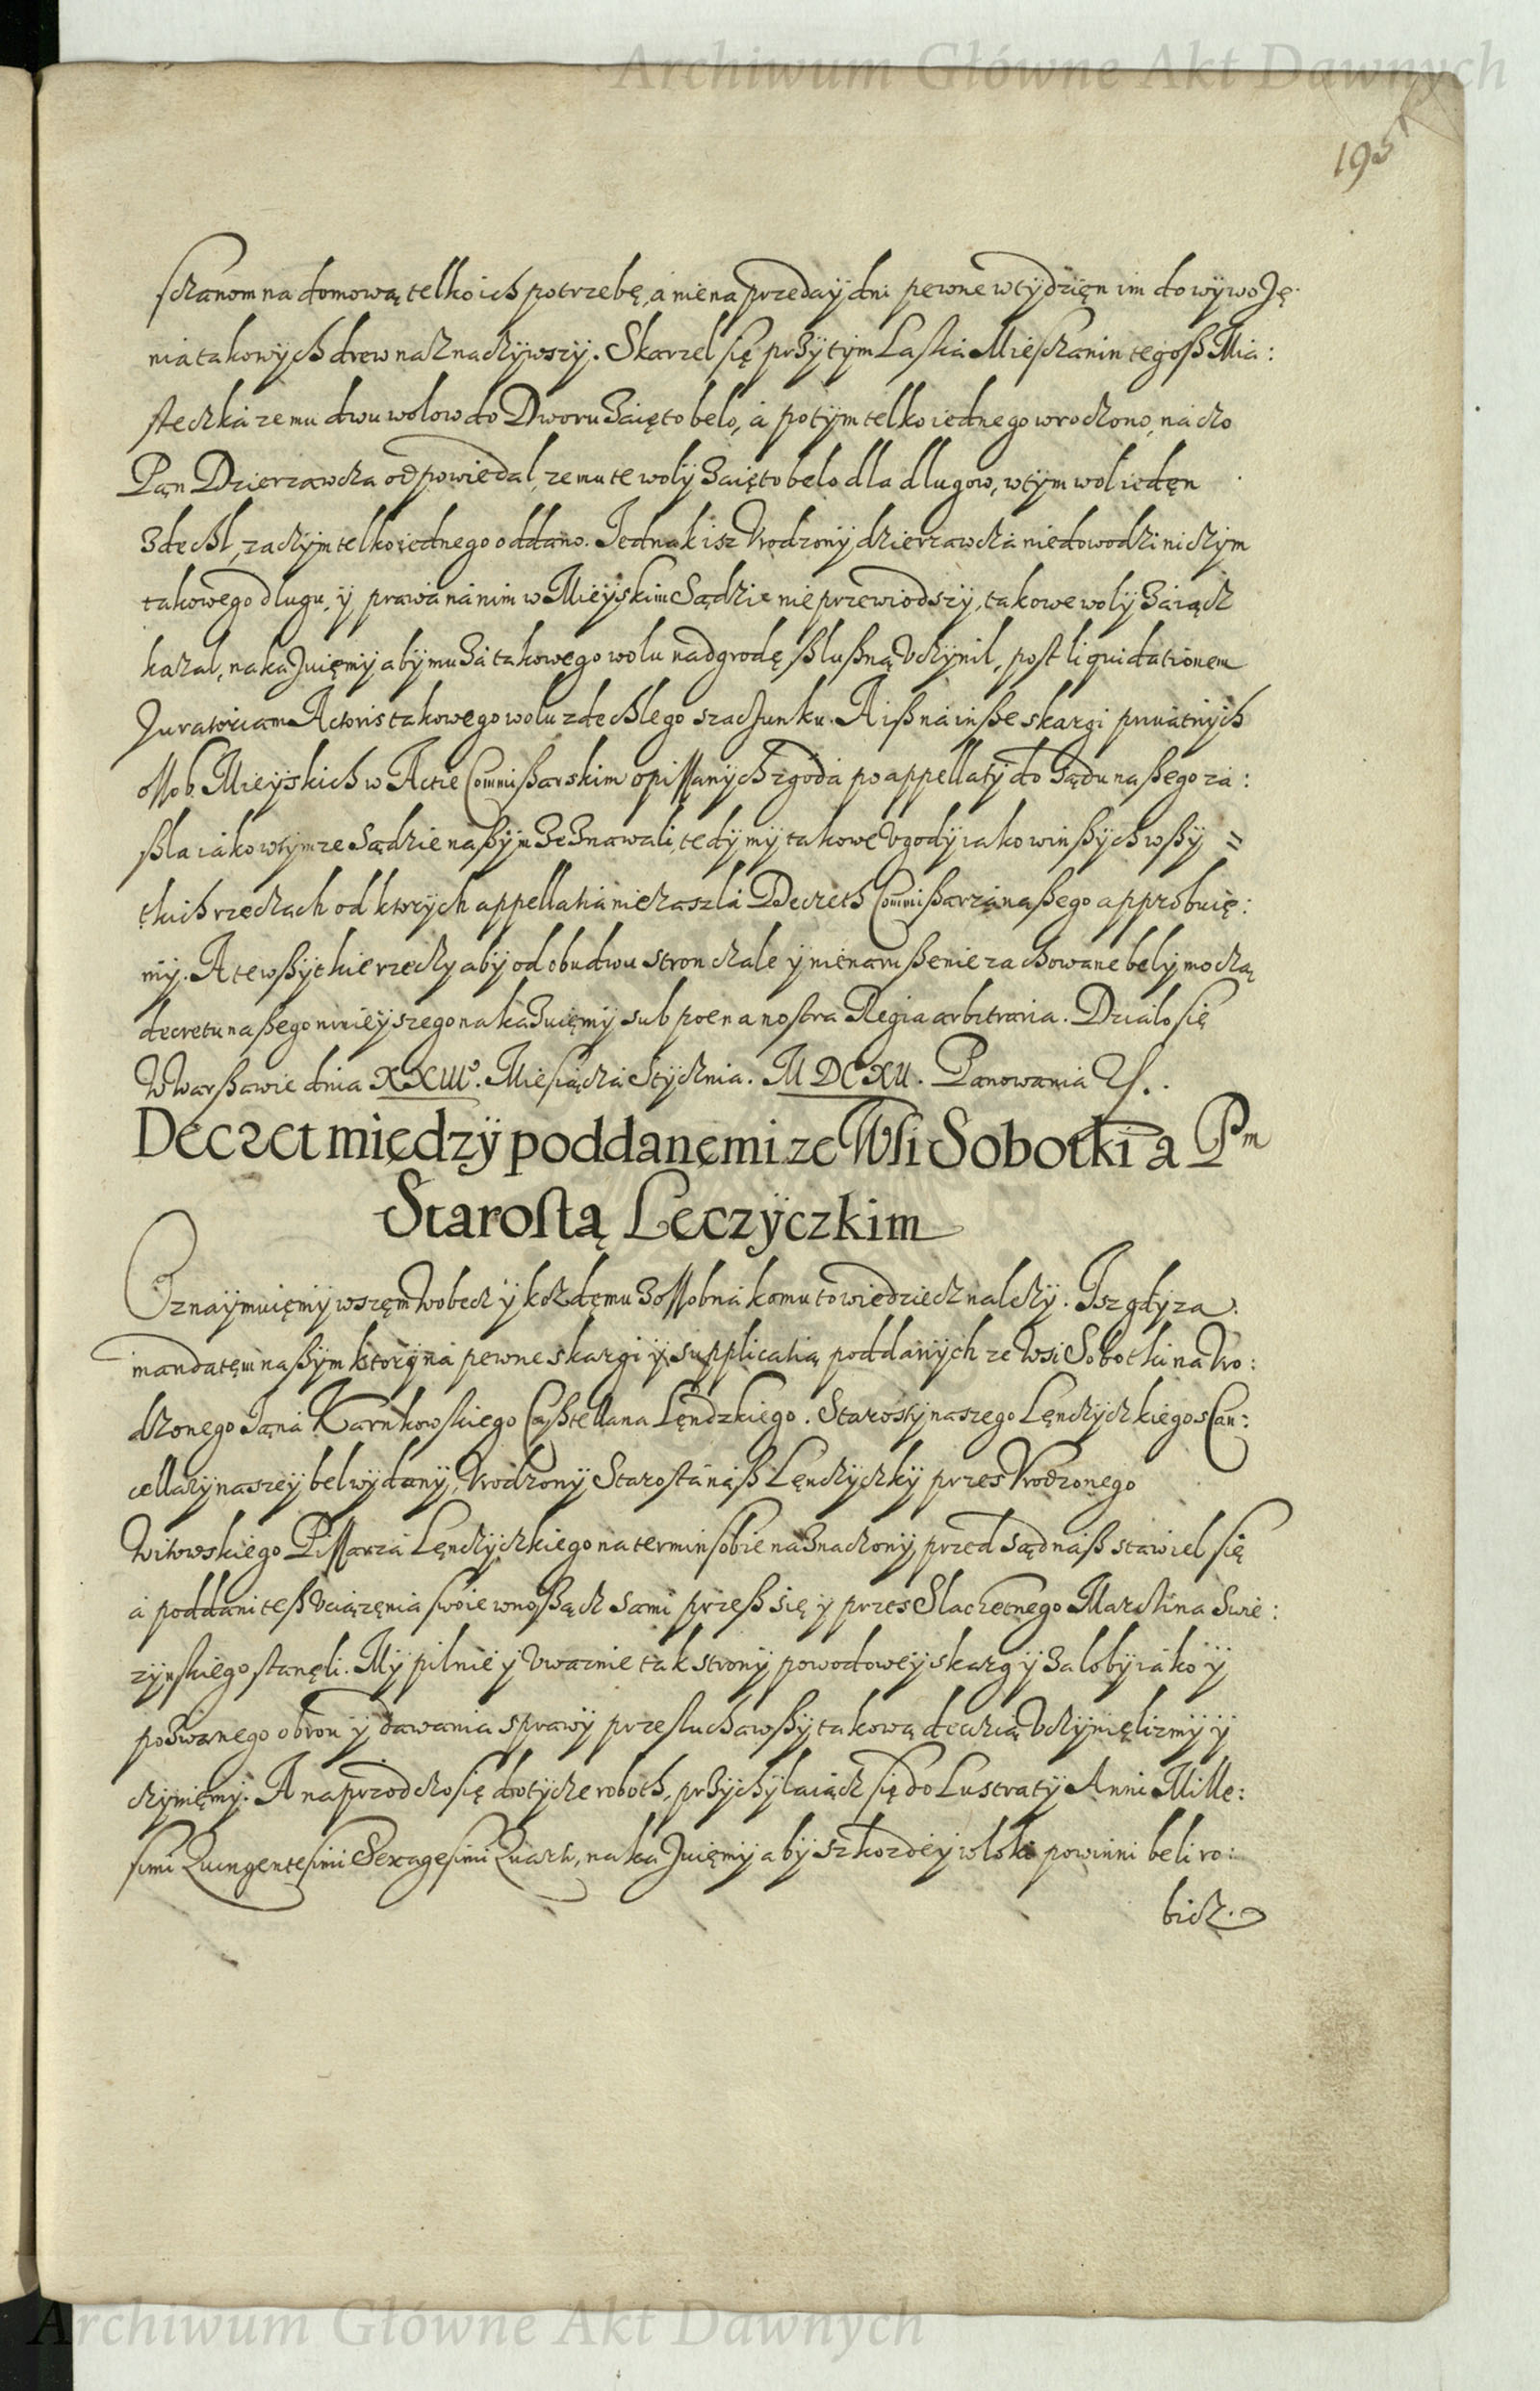 Archiwum Główne Akt Dawnych
195
sczanom na domową telko ich potrzebę, a nie na przedaÿ dni pewne w tÿdzięn im do wÿwożę
nia takowÿch drew naznaczÿwszÿ. Skarzel się przÿ tÿm Laska Miesczanin tegosß Mia:
steczka ze mu dwu wolow do Dworu zaięto belo, a potÿm telko iednego wroczono, na czo
Pąn Dzierzawcza odpowiedal, ze mu te wolÿ zaięto belo dla dlugow, w tÿm wol iedęn
zdechl, zaczÿm telko iednego oddano. Jednak isz Vrodzonÿ dzierzawcza nie dowodzi niczÿm
takowego dlugu, ÿ prawa na nim w Mieÿskim Sądzie nie przewiodszÿ, takowe wolÿ zaiącz
kazal, nakazuięmÿ abÿ mu za takowego wolu nadgrodę slusßną vczÿnil, post liquidationem
Juratoriam Actoris takowego wolu zdechlego szaczunku. A isß na insße skargi priuatnÿch
ossob Mieÿskich w Actie Commisßarskim opissanÿch zgoda po appellatÿ do Sądu nasßego za:
sßla iako w tÿmze Sądzie nasßÿm zeznawali, tedÿ mÿ takowe vgodÿ iako w insßÿch wsßÿ =
tkich rzeczach od ktorÿch appellatia nie zaszla Decreth Commisßarza nasßego approbuię:
mÿ. A te wsßÿtkie rzeczÿ abÿ od obudwu stron czale ÿ nienarusßenie zachowane belÿ moczą
decretu nasßego ninieÿszego nakazuięmÿ sub poena nostra Regia arbitraria. Dzialo się
W Warsßawie dnia XXIII°. Miesiącza Stÿcznia. M DC XII. Panowania
Decret międzÿ poddanęmi ze Wsi Sobotki a Pm
Starostą Leczÿczkim
Oznaÿmuięmÿ wszęm wobecz ÿ kozdęmu zossobna komu to wiedziecz nalezÿ. Isz gdÿ za
mandatęm nasßÿm ktorÿ na pewne skargi ÿ supplicatią poddanÿch ze wsi Sobotki na Vro:
dzonego Jąna Karnkowskiego Casßtellana Lęndzkiego. Starostÿ naszego Lęnczÿczkiego s Can:
cellarÿ naszeÿ bel wÿdanÿ, Vrodzonÿ Starosta nasß Lęnczÿczkÿ przes Vrodzonego
Witowskiego Pissarza Lęnczÿczkiego na termin sobie naznaczonÿ przed Sąd nasß stawiel się
a poddani tesß vciązęnia swoie wnosßącz sami przesß się ÿ przes Slachetnego Marczina Swie:
zÿnskiego stanęli. Mÿ pilnie ÿ vwaznie tak stronÿ powodoweÿ skarg ÿ zalobÿ iako ÿ
pozwanego obron ÿ dawania sprawÿ przesluchawsßÿ takową decizią vczÿnięlizmÿ ÿ
czÿnięmÿ. A naprzod czo się dotÿcze roboth, przÿchÿlaiącz się do Lustratÿ Anni Mille:
simi Quingentesimi Sexagesimi Quarti, nakazuięmÿ abÿ s kozdeÿ wloki powinni beli ro:
bicz.
Archiwum Główne Akt Dawnych